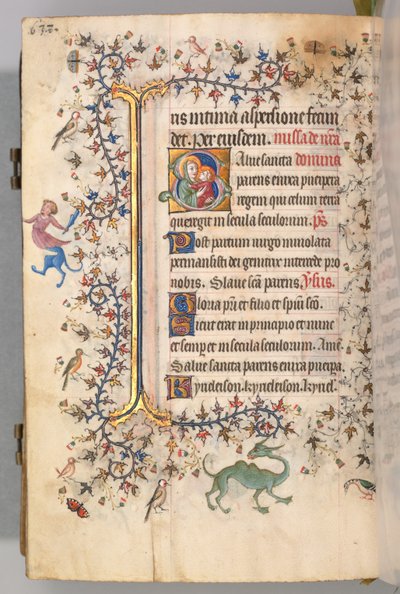 ris intima aspersione fecun
det. Per eiusdem. missa de nra
Salue sancta domina
parens enixa puerpera
regem qui celum terrā
que regit in secula seculorum. ps
Post partum uirgo inuiolata
permansisti dei genitrix intercede pro
nobis. Salue scā parens. ysus.
Gloria pr̄i et filio et spiri scō.
Sicut erat in principio et nunc
et semper et in secula seculorum. Ame
Salue sancta parens enixa puerpa.
Kyrieleison. kyrieleison. kyriel.